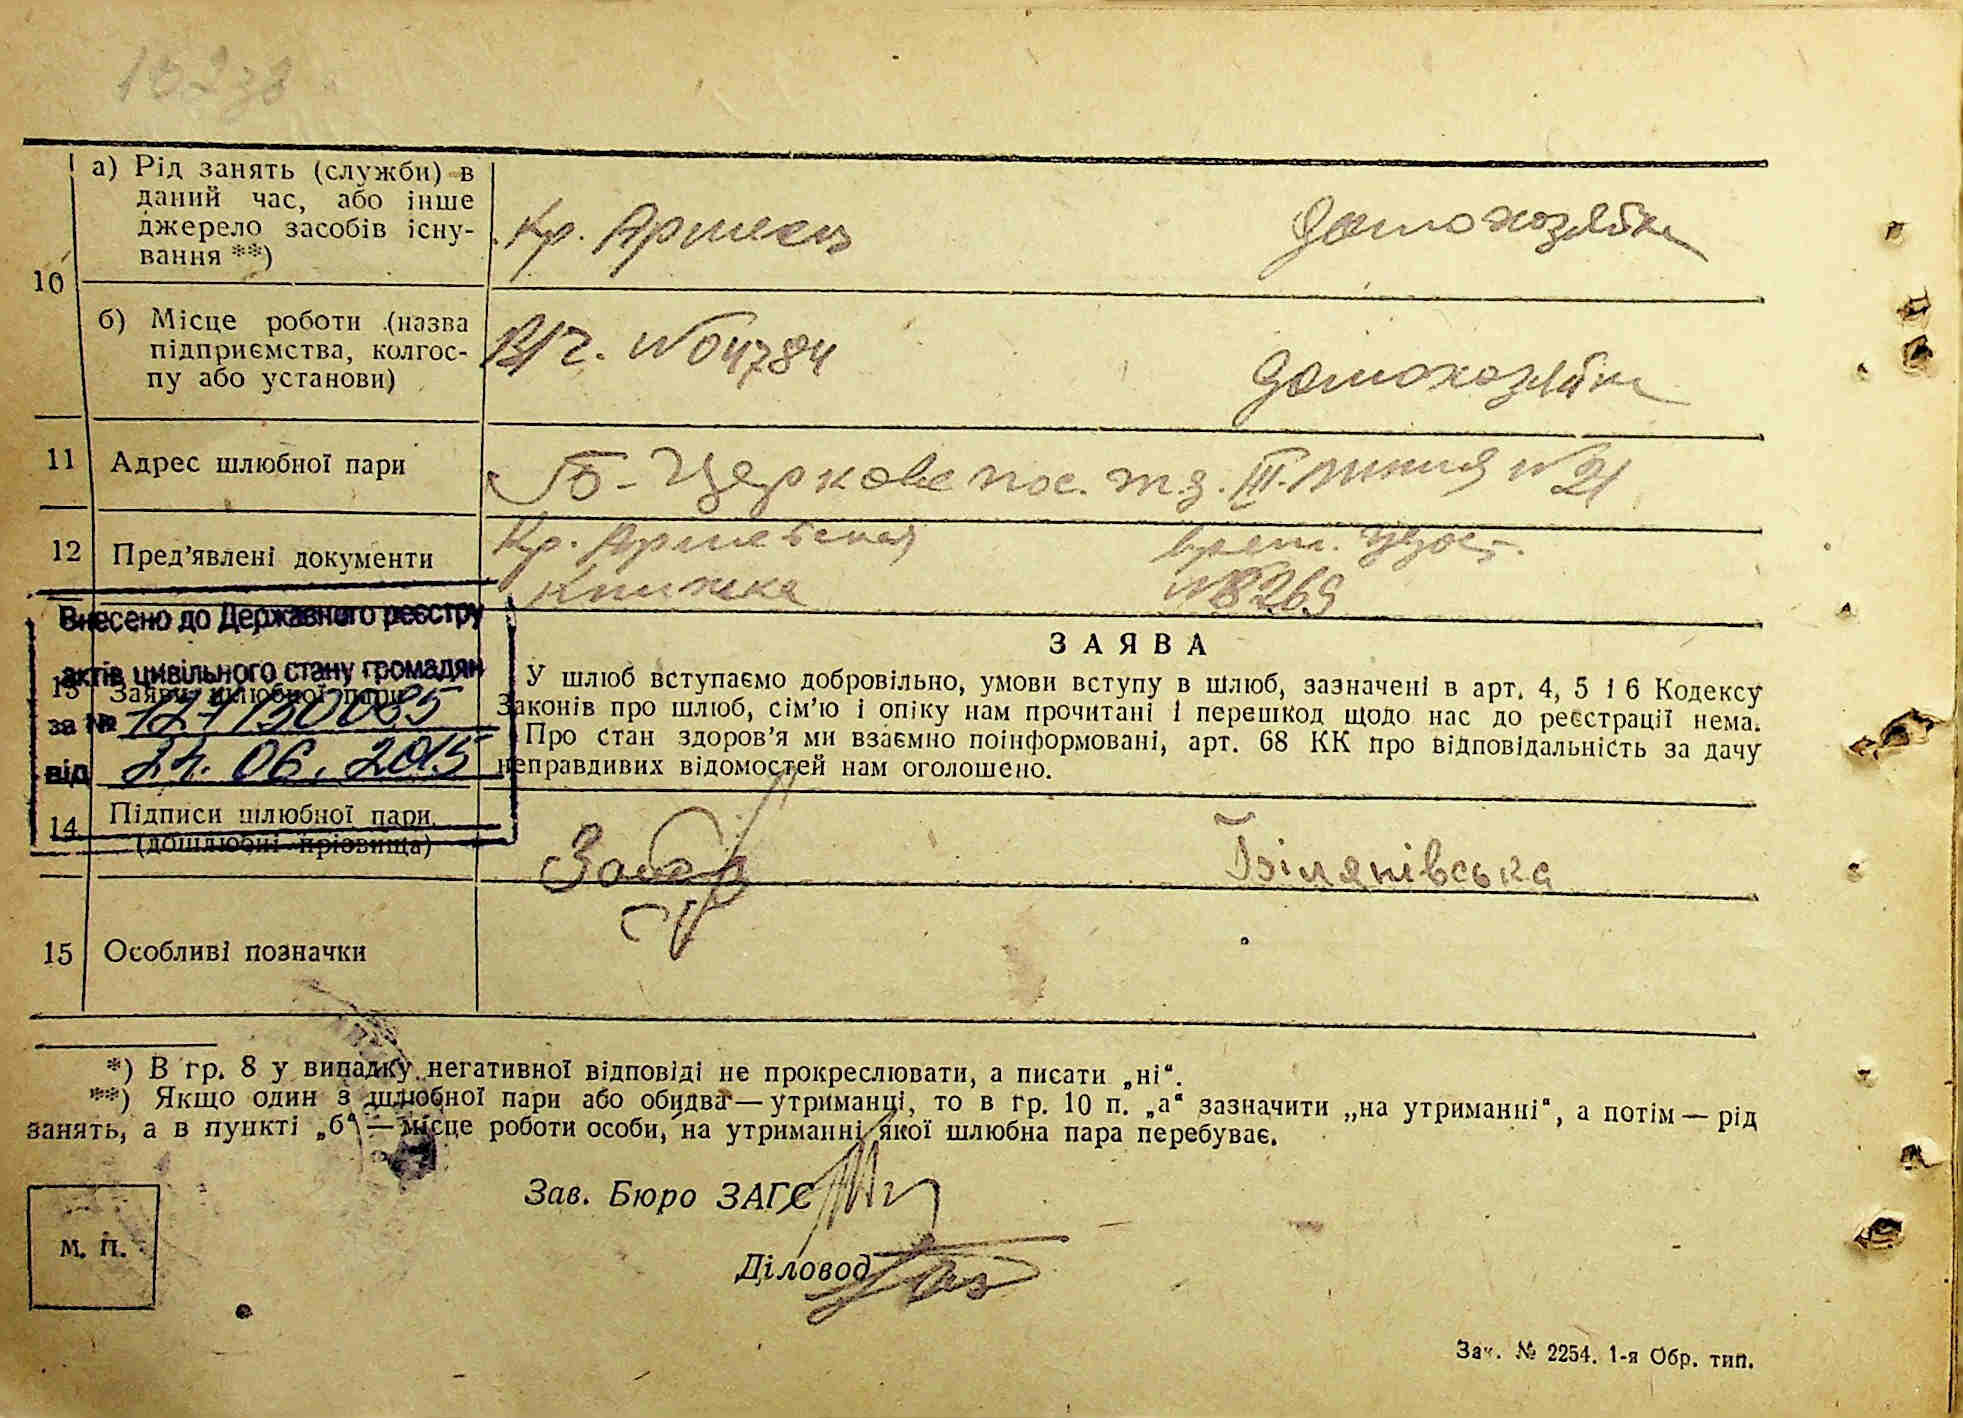 а) Рід занять (службн) в
даний час, або інше
джерело засобів існу-
вання **)
Кр. Армеец
домохозяйка
10
б) Місце роботи (назва
підприємства, колгос-
пу або установи)
В/Ч. №04784
домохозяйка
11 Адрес шлюбної пари
Б-Церковь пос. т.з. III. линия №21
12 Пред'явлені документи
Кр. Армейская врем. удост.
книжка №8269
Внесено до Державного реєстру
актів цивільного стану громадян
за №
від 24. 06. 2015
13 Заява шлюбної пари
ЗАЯВА
У шлюб вступаємо добровільно, умови вступу в шлюб, зазначені в арт. 4, 5 і 6 Кодексу
Законів про шлюб, сім'ю і опіку нам прочитані і перешкод щодо нас до реєстрації нема.
Про стан здоров'я ми взаємно поінформовані, арт. 68 КК про відповідальність за дачу
неправдивих відомостей нам оголошено.
14 Підписи шлюбної пари
(дошлюбні прізвища)
Білянівська
15 Особливі позначки
*) В гр. 8 у випадку негативної відповіді не прокреслювати, а писати „ні“.
**) Якщо один з шлюбної пари або обидва — утриманці, то в гр. 10 п. „а“ зазначити „на утриманні“, а потім — рід
занять, а в пункті „б“ — місце роботи особи, на утриманні якої шлюбна пара перебуває.
Зав. Бюро ЗАГС
М. П.
Діловод
Зач. № 2254. 1-я Обр. тип.